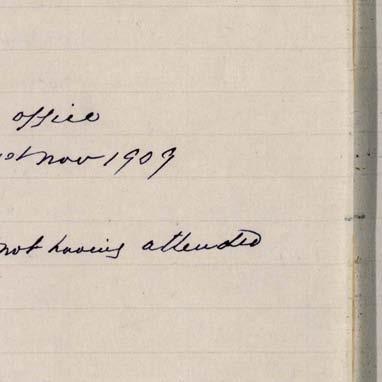 office
Nov 1909
not having attended